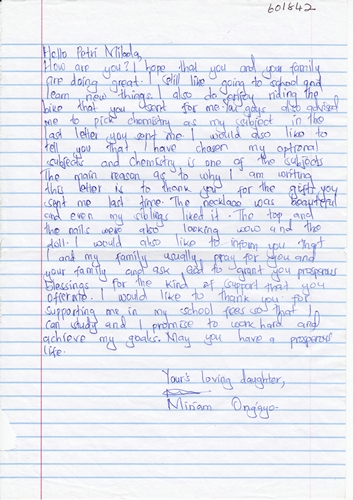 601842
Hello Petri Nibola,
How are you? I hope that you and your family
are doing great. I still like going to school and
learn new things. I also do enjoy riding the
bike that you sent for me. You guys also advised
me to pick chemistry as my subject in the
last letter you sent me. I would also like to
tell you that I have chosen my optional
subjects and chemistry is one of the subjects
The main reason as to why I am writing
this letter is to thank you for the gifts you
sent me last time. The necklace was beautiful
and even my siblings liked it. The top and
the nails were also looking wow and the
doll. I would also like to inform you that
I and my family usually pray for you and
your family and ask God to grant you prosperous
blessings for the kind of support that you
offer me. I would like to thank you for
supporting me in my school fees so that I
can study and I promise to work hard and
achieve my goals. May you have a prosperous
life.
Your's loving daughter,
Miriam Ong'ayo.